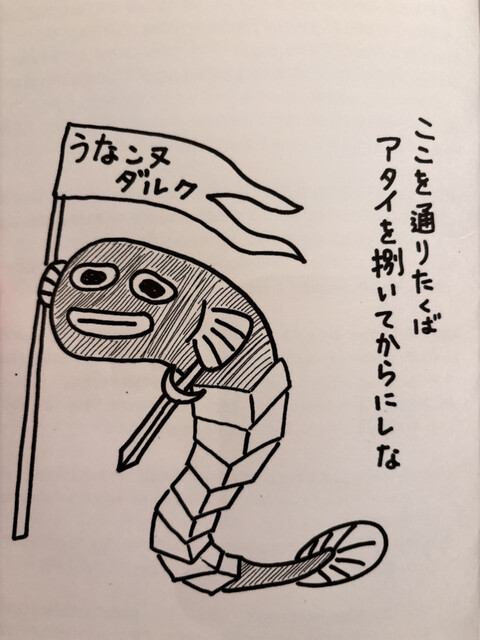 ここを通りたくば
アタイを捌いてからにしな
うなンヌ
ダルク